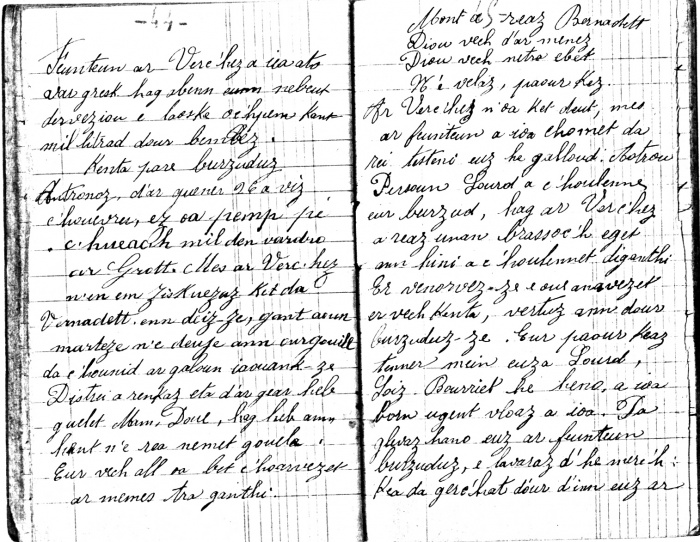 -44-
Feunteun ar Verc'hez a ioa ato
var gresk hag abenn eunn nebeut
dervesiou e laoske ochpenn kant
mil litrad dour bemdez.
Kenta pare burzuduz
Antronoz, d'ar guener 26 a viz
c'houevreu, ez oa pemp pe
c'hueac'h mil den vardro
ar Grott. Mes ar Verc'hez
n'en em ziskuezaz ket da
Vernadett enn deiz-ze, gant aoun
marteze n'e deufe ann ourgouill
da c'hounid ar galoun iaouank-ze
Distrei a renkaz eta d'ar gear heb
guelet Mam, Doue, hag heb ann
hent n'e rea nemet gouela.
Eur vech all oa bet c'hoarvezet
ar memes tra ganthi.
Mont a reaz Bernadett
Diou vech d'ar menez
Diou vech netra ebet
N'e velaz, paour kez.
Ar Verc'hez n'oa ket deut, mes
ar feunteun a ioa chomet da
rei testeni euz he galloud. Aotrou
Persoun Lourd a c'houlenne
eur burzud, hag ar Verc'hez
a reaz unan brassoc'h eget
ann hini a c'houlennet diganthi
Er venorvez-ze e oue anavezet
er vech kenta, vertuz ann dour
burzuduz-ze. Eur paour keaz
tenner mein euz a Lourd,
Loiz Bourriet he hano, a ioa
born ugent vloaz a ioa. Pa
glevaz hano euz ar feunteun
burzuduz, e lavaraz d'he merc'h:
Kea da gerc'hat dour d'inn euz ar